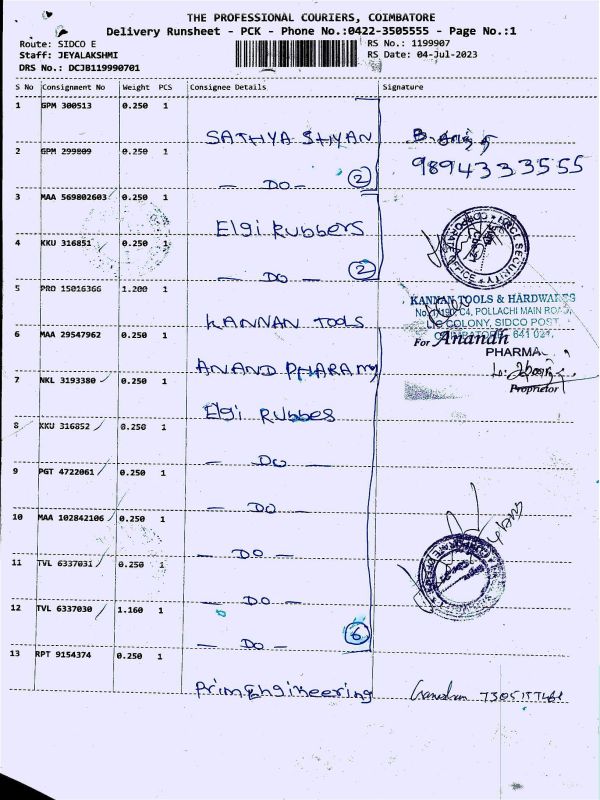 THE PROFESSIONAL COURIERS, COIMBATORE
Delivery Runsheet - PCK - Phone No.:0422-3505555 - Page No.:1
Route: SIDCO E
RS No.: 1199907
Staff: JEYALAKSHMI
RS Date: 04-Jul-2023
DRS No.: DCJB119990701
S No Consignment No Weight PCS Consignee Details Signature
1 GPM 300513 0.250 1
SATHYA SHYAN
2 GPM 299809 0.250 1
9894333555
- DO - 2
3 MAA 569802603 0.250 1
Elgi Rubbers
4 KKU 316851 0.250 1
- DO - 2
CORPORATE OFFICE
5 PRO 15016366 1.200 1
KANNAN TOOLS & HARDWARES
POLLACHI MAIN ROAD,
KANNAN TOOLS
COLONY, SIDCO POST,
6 MAA 29547962 0.250 1
641 021.
For Anandh
PHARMA
ANAND PHARAMY
7 NKL 3193380 0.250 1
Proprietor
Elgi Rubbes
8 KKU 316852 0.250 1
- DO -
9 PGT 4722061 0.250 1
- DO -
10 MAA 102842106 0.250 1
- DO -
11 TVL 6337031 0.250 1
- DO -
12 TVL 6337030 1.160 1
- DO - 6
13 RPT 9154374 0.250 1